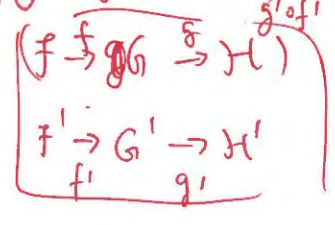 g'∘f'
f g
(F → G → H)
F' → G' → H'
f' g'